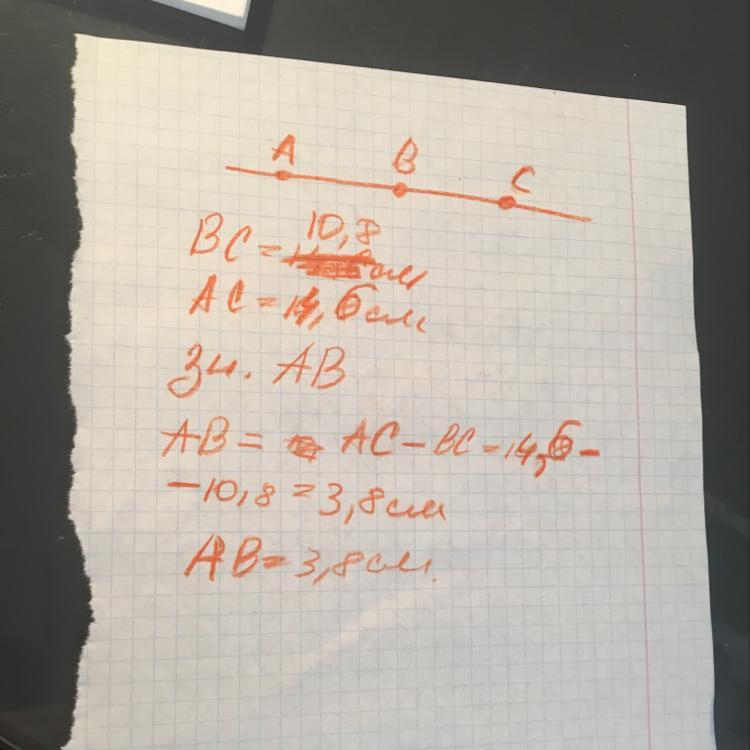 A B C
10,8
BC = см
AC = 14,6 см
Зн. AB
AB = AC – BC = 14,6 –
– 10,8 = 3,8 см
AB = 3,8 см.